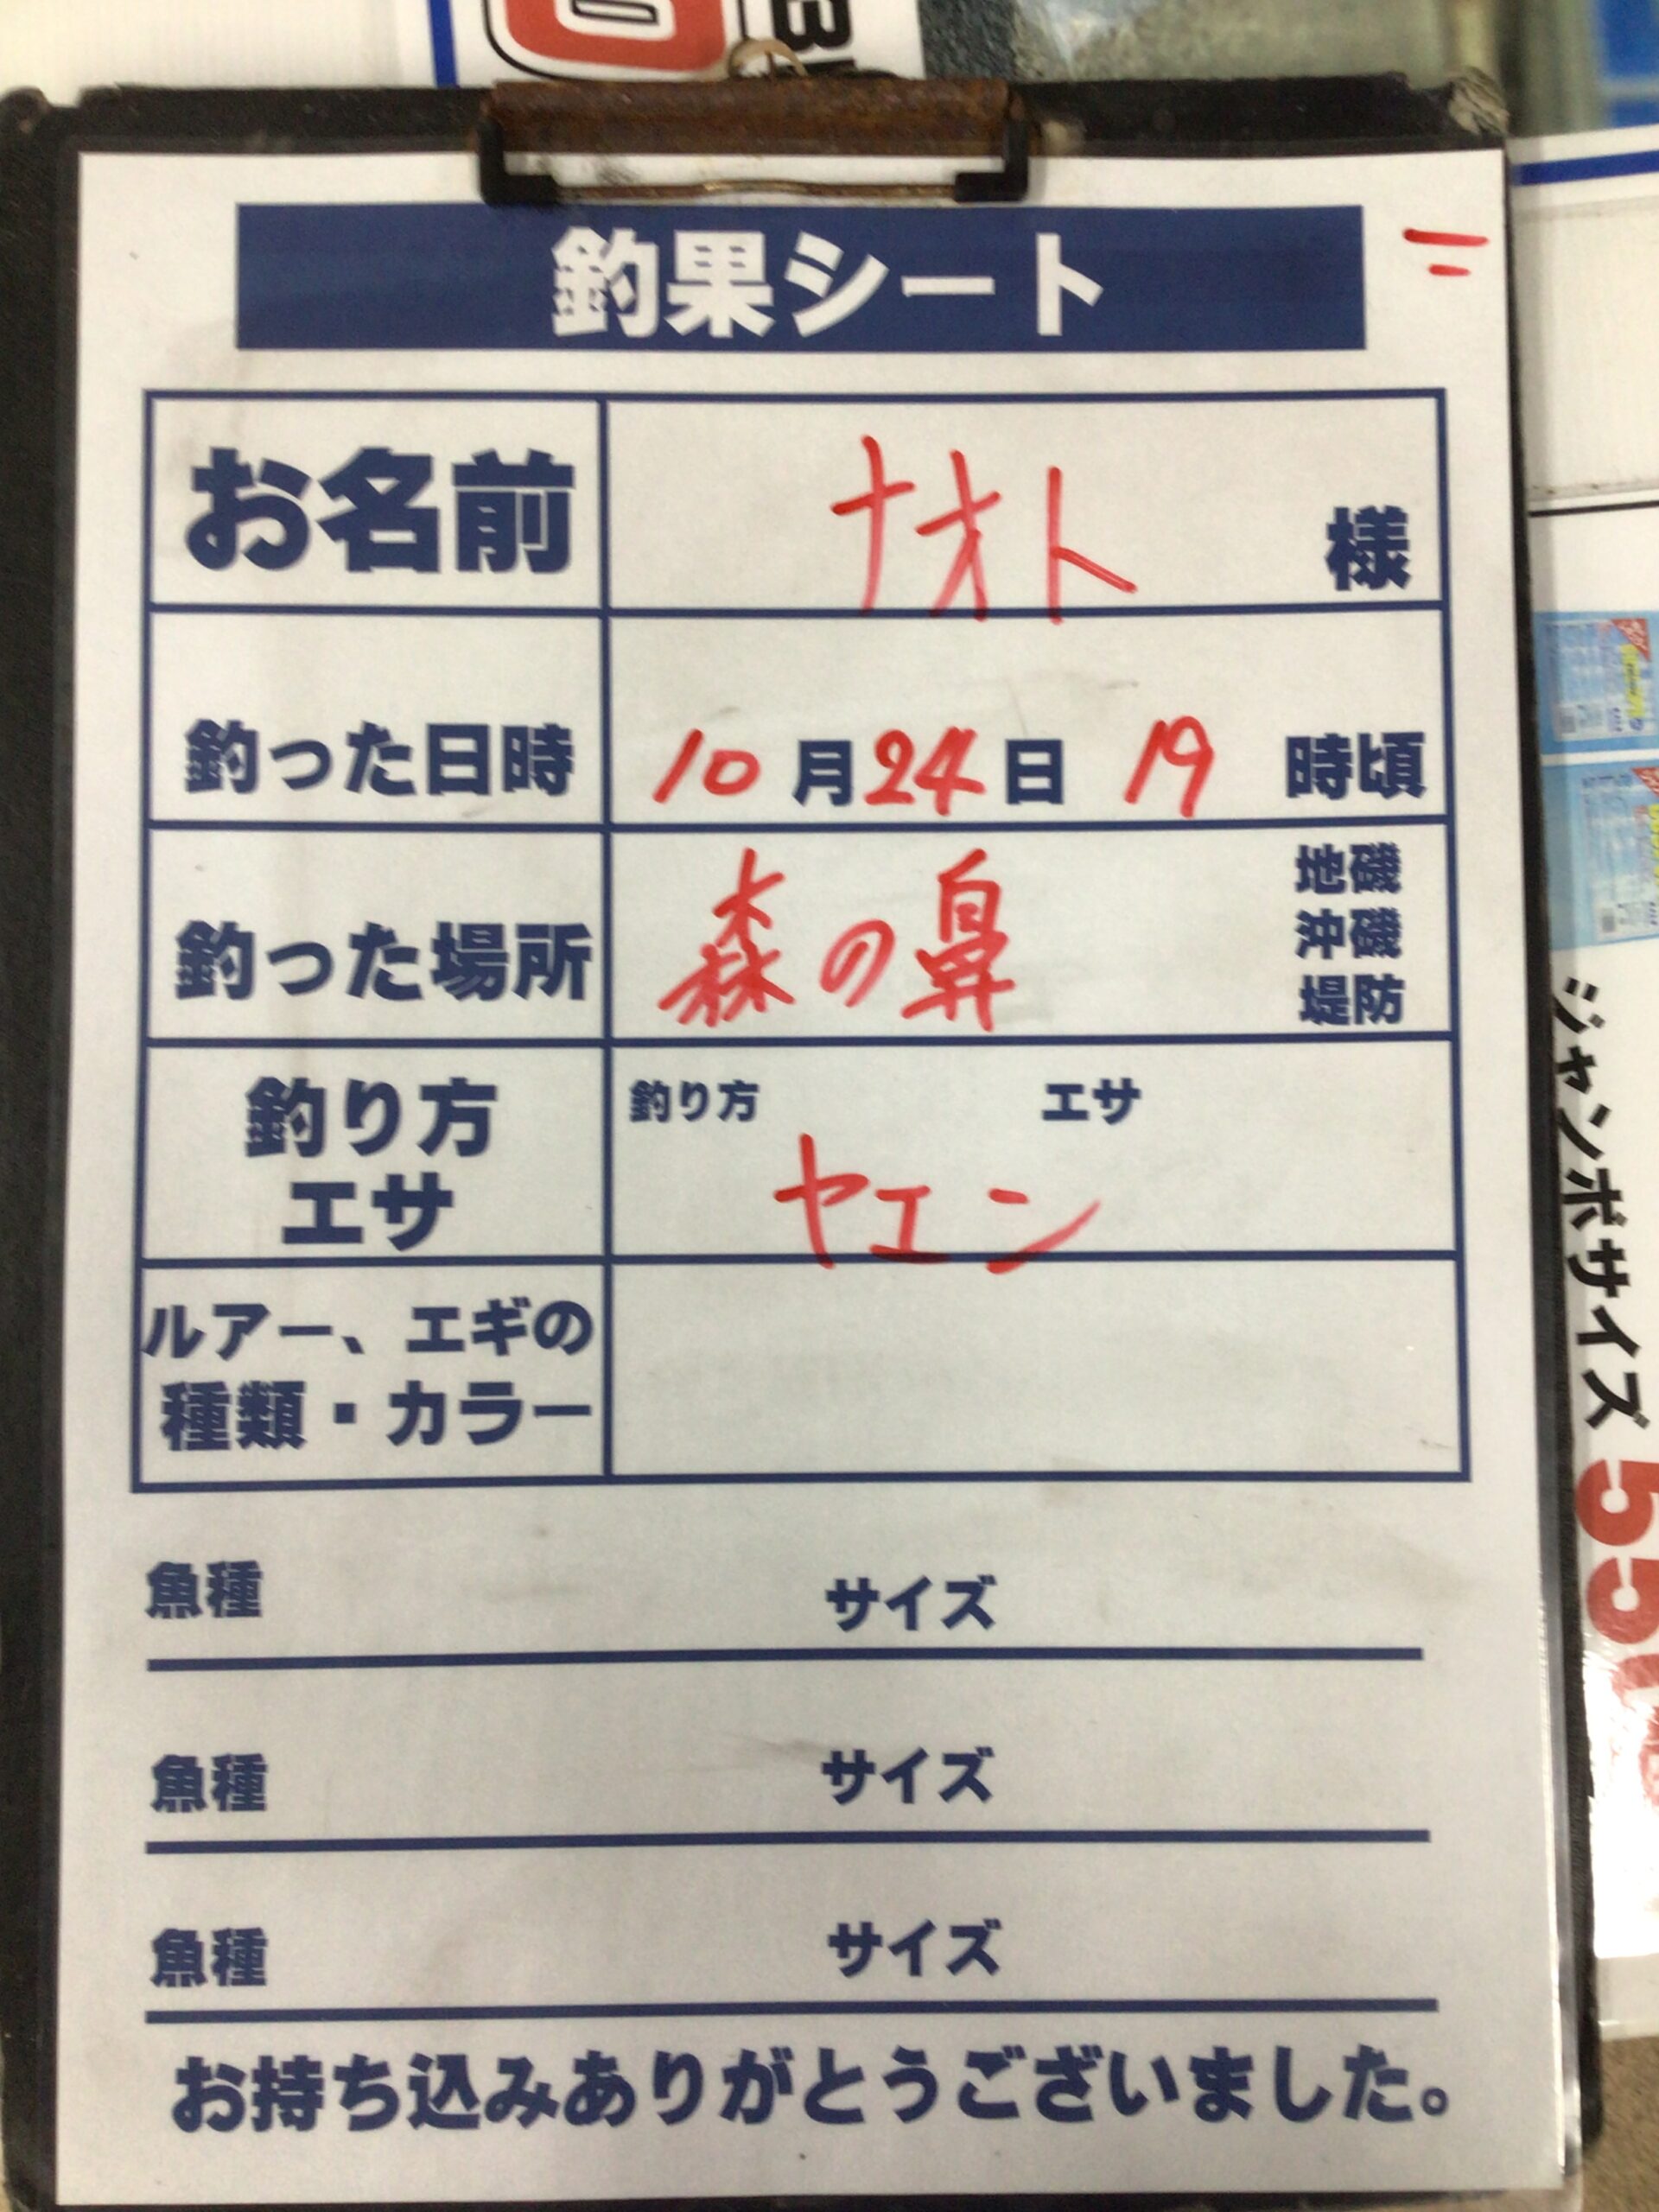 釣果シート
お名前 ナオト 様
釣った日時 10月24日 19時頃
釣った場所 森の鼻 地磯
沖磯
堤防
釣り方
エサ
釣り方 エサ
ヤエン
ルアー、エギの
種類・カラー
魚種 サイズ
魚種 サイズ
魚種 サイズ
お持ち込みありがとうございました。
ジャンボサイズ